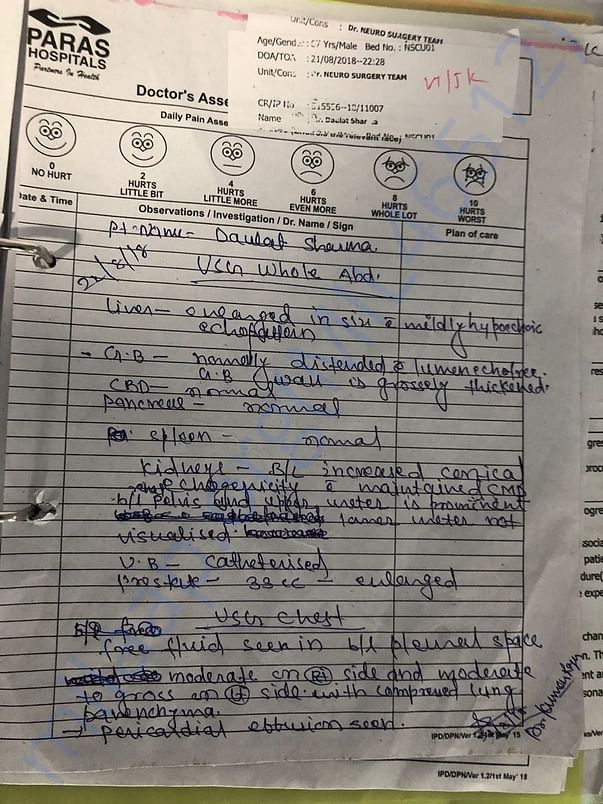 PARAS
HOSPITALS
Partners In Health
Unit/Cons : Dr. NEURO SURGERY TEAM
Age/Gender : 67 Yrs/Male Bed No. : NSCU01
DOA/TOA : 21/08/2018--22:28
Unit/Cons : Dr. NEURO SURGERY TEAM
CR/IP No
Name Daulat Shar
Doctor's Asse
Daily Pain Asse
0
NO HURT
2
HURTS
LITTLE BIT
4
HURTS
LITTLE MORE
6
HURTS
EVEN MORE
8
HURTS
WHOLE LOT
10
HURTS
WORST
Date & Time
Observations / Investigation / Dr. Name / Sign
Plan of care
Pt. name - Daulat Sharma.
22/8/18
USG Whole Abd.
Liver - enlarged in size c mildly hypoechoic
echopattern
- G.B - normally distended c lumen echofree.
G.B wall is grossly thickened.
CBD - normal
Pancreas - normal
spleen - normal
Kidneys - B/L increased cortical
echogenicity c maintained CMD
b/l Pelvis and upper ureter is prominent
lower ureter not
visualised.
U.B - catheterised
Prostate - 33cc - enlarged
USG Chest
free fluid seen in b/l pleural space
moderate on Rt side and moderate
to gross on Lt side with compressed lung
parenchyma.
→ Pericardial effusion seen.
IPD/DPN/Ver 1.2/1st May' 18